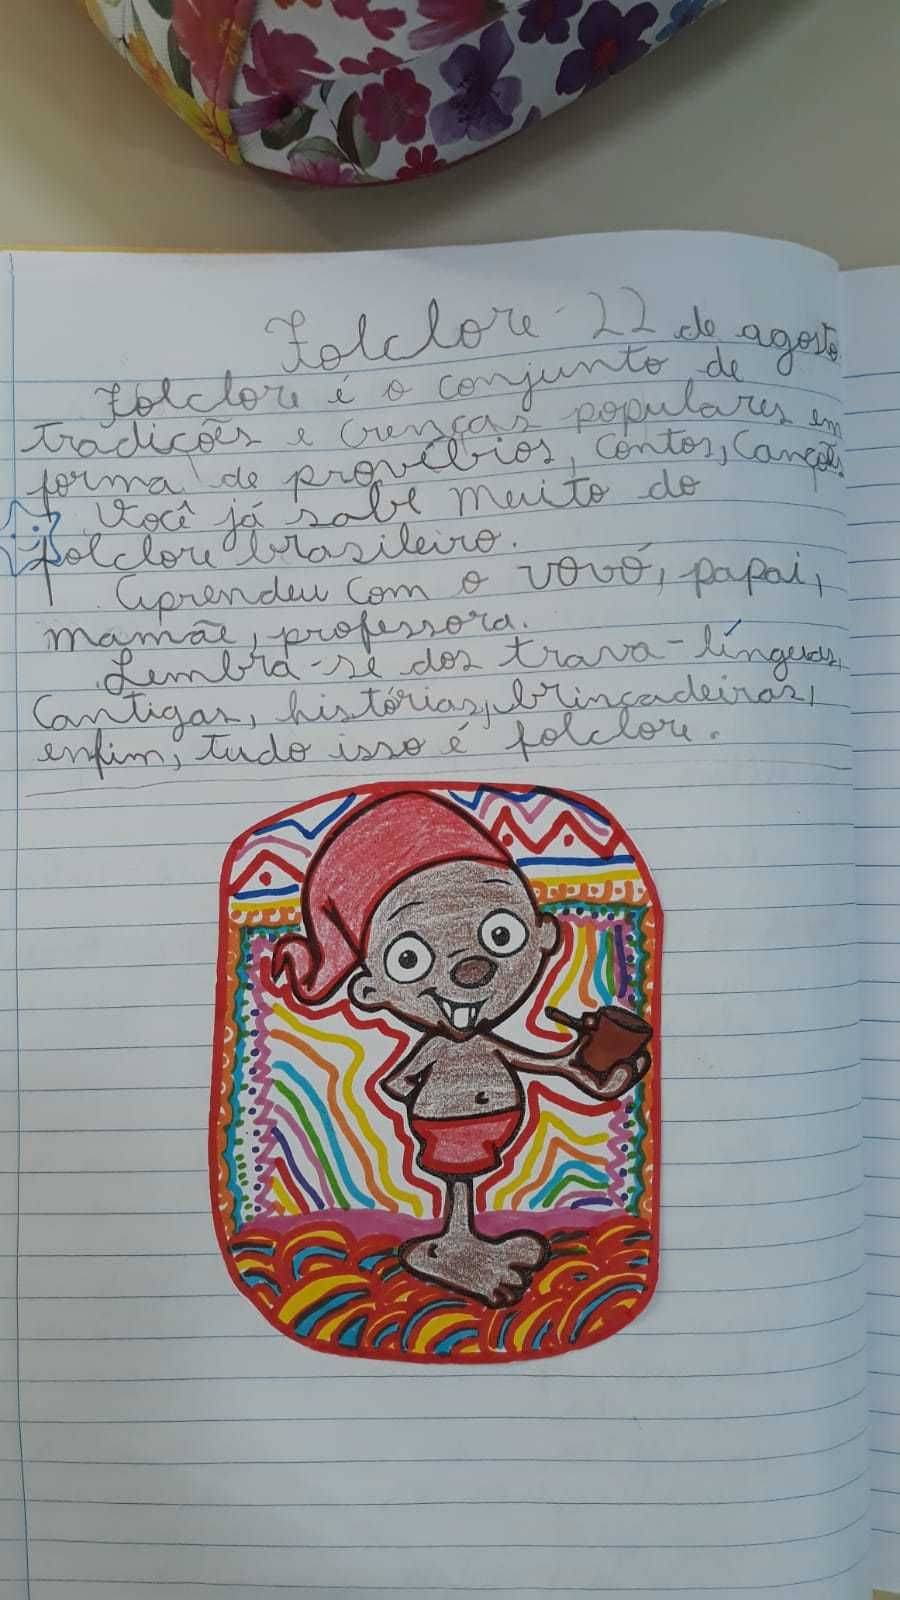 Folclore - 22 de agosto.
Folclore é o conjunto de
tradições e crenças populares em
forma de provérbios, contos, canções
Você já sabe muito do
folclore brasileiro.
Aprendeu com o vovó, papai,
mamãe, professora.
Lembra-se dos trava-línguas,
cantigas, histórias, brincadeiras,
enfim, tudo isso é folclore.